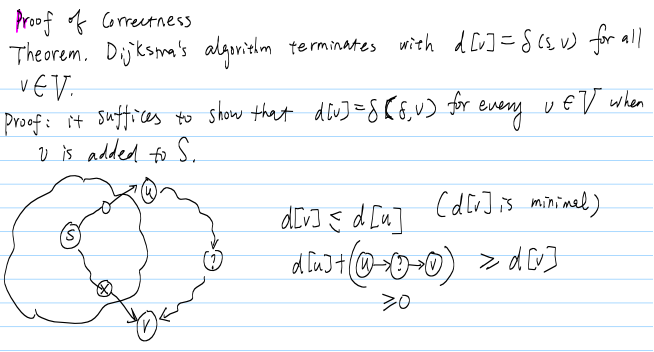 Proof of Correctness
Theorem. Dijkstra's algorithm terminates with d[v] = δ(s, v) for all
v ∈ V.
Proof: it suffices to show that d[v] = δ(s, v) for every v ∈ V when
v is added to S.
u
S
?
x
v
d[v] ≤ d[u] (d[v] is minimal)
d[u] + (u → ? → v) ≥ d[v]
≥ 0